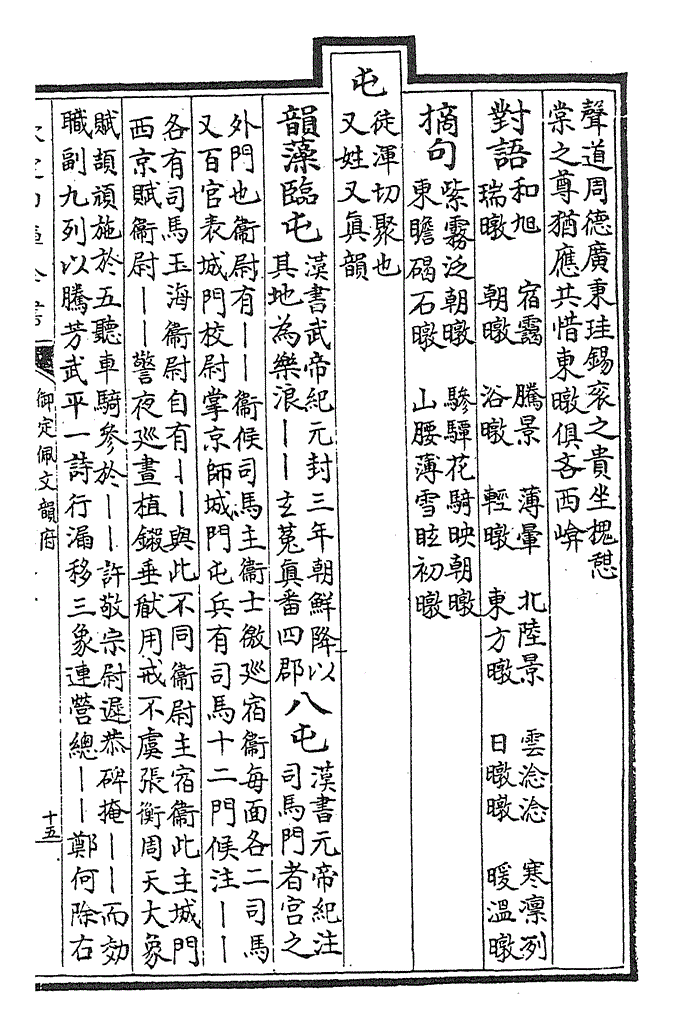 聲道周德廣秉珪錫衮之貴坐槐憇
棠之尊猶應共惜東暾俱吝西崦
對語
和旭　宿靄　騰景　薄暈　北陸景　雲淰淰　寒凜冽
瑞暾　朝暾　浴暾　輕暾　東方暾　日暾暾　暖溫暾
摘句
紫霧泛朝暾　驂驔花騎映朝暾
東瞻碣石暾　山腰薄雪眩初暾
屯
徒渾切聚也
又姓又真韻
韻藻臨屯
漢書武帝紀元封三年朝鮮降以
其地為樂浪——玄菟真番四郡
八屯
漢書元帝紀注
司馬門者宮之
外門也衞尉有——衞候司馬主衞士徼巡宿衞每面各二司馬
又百官表城門校尉掌京師城門屯兵有司馬十二門候注——
各有司馬玉海衞尉自有——與此不同衞尉主宿衞此主城門
西京賦衞尉——警夜巡晝植鎩垂瞂用戒不虞張衡周天大象
賦頡頏施於五聽車騎參於——許敬宗尉遲恭碑掩——而効
職副九列以騰芳武平一詩行漏移三象連營總——鄭何除右
御定佩文韻府
十五